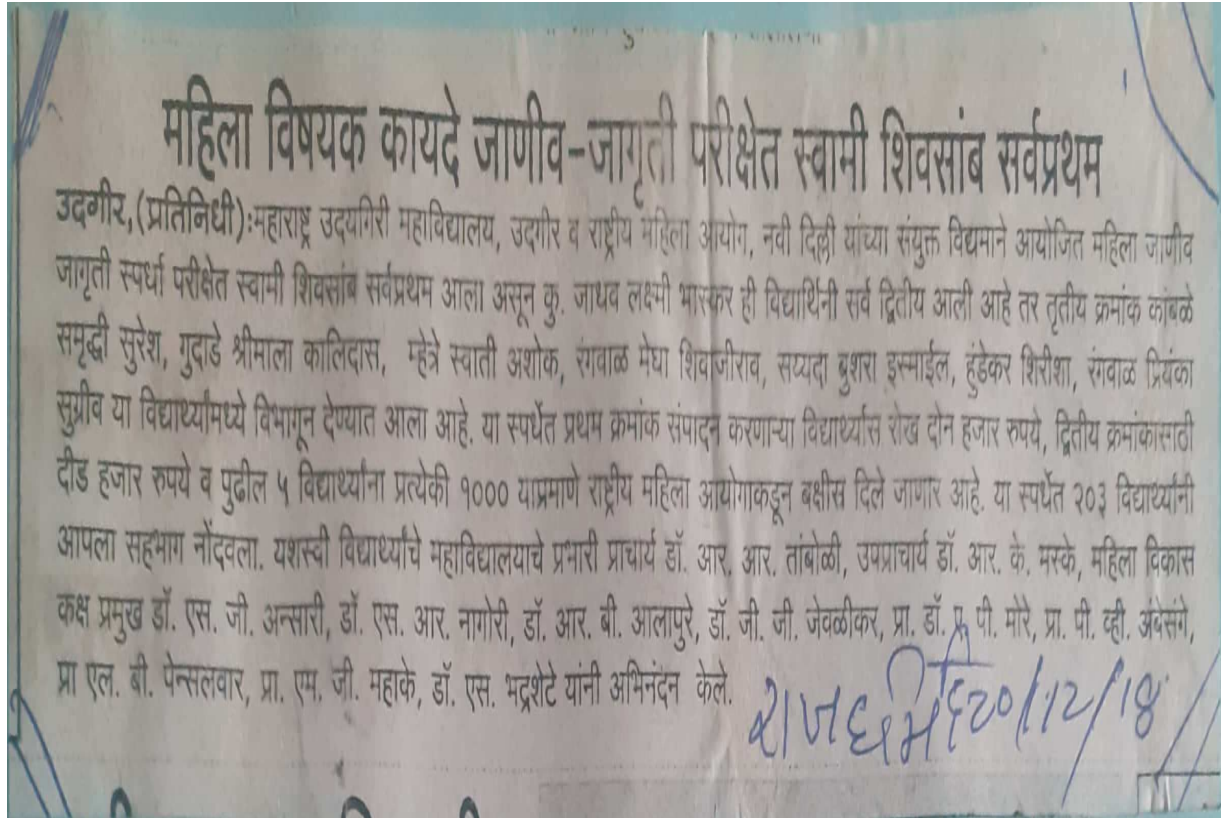 महिला विषयक कायदे जाणीव-जागृती परीक्षेत स्वामी शिवसांब सर्वप्रथम
उदगीर,(प्रतिनिधी):महाराष्ट्र उदयगिरी महाविद्यालय, उदगीर व राष्ट्रीय महिला आयोग, नवी दिल्ली यांच्या संयुक्त विद्यमाने आयोजित महिला जाणीव
जागृती स्पर्धा परीक्षेत स्वामी शिवसांब सर्वप्रथम आला असून कु. जाधव लक्ष्मी भास्कर ही विद्यार्थिनी सर्व द्वितीय आली आहे तर तृतीय क्रमांक कांबळे
समृद्धी सुरेश, गुदाडे श्रीमाला कालिदास, म्हेत्रे स्वाती अशोक, रंगवाळ मेघा शिवाजीराव, सय्यदा बुशरा इस्माईल, हुंडेकर शिरीशा, रंगवाळ प्रियंका
सुग्रीव या विद्यार्थ्यांमध्ये विभागून देण्यात आला आहे. या स्पर्धेत प्रथम क्रमांक संपादन करणाऱ्या विद्यार्थ्यास रोख दोन हजार रुपये, द्वितीय क्रमांकासाठी
दीड हजार रुपये व पुढील ५ विद्यार्थ्यांना प्रत्येकी १००० याप्रमाणे राष्ट्रीय महिला आयोगाकडून बक्षीस दिले जाणार आहे. या स्पर्धेत २०३ विद्यार्थ्यांनी
आपला सहभाग नोंदवला. यशस्वी विद्यार्थ्यांचे महाविद्यालयाचे प्रभारी प्राचार्य डॉ. आर. आर. तांबोळी, उपप्राचार्य डॉ. आर. के. मस्के, महिला विकास
कक्ष प्रमुख डॉ. एस. जी. अन्सारी, डॉ. एस. आर. नागोरी, डॉ. आर. बी. आलापुरे, डॉ. जी. जी. जेवळीकर, प्रा. डॉ. पी. मोरे, प्रा. पी. व्ही. अंबेसंगे,
प्रा एल. बी. पेन्सलवार, प्रा. एम. जी. महाके, डॉ. एस. भद्रशेटे यांनी अभिनंदन केले.
राजधर्म दि 20/12/18